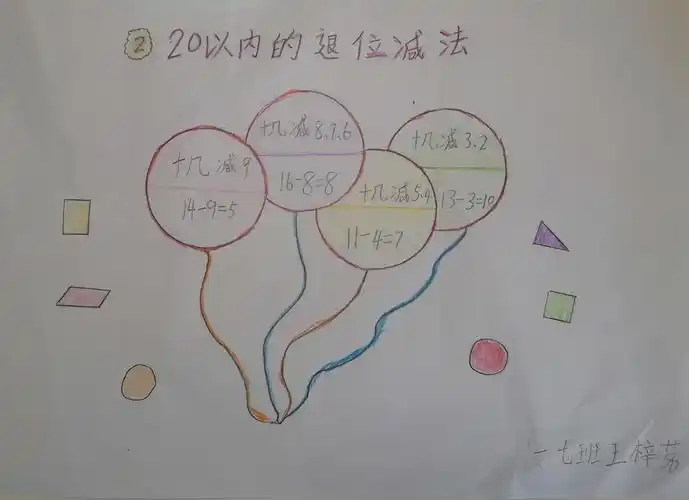 2 20以内的退位减法
十几减9
14-9=5
十几减8、7、6
16-8=8
十几减5.4
11-4=7
十几减3、2
13-3=10
一七班王梓